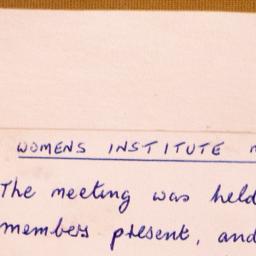 WOMENS INSTITUTE
The meeting was held
members present, and